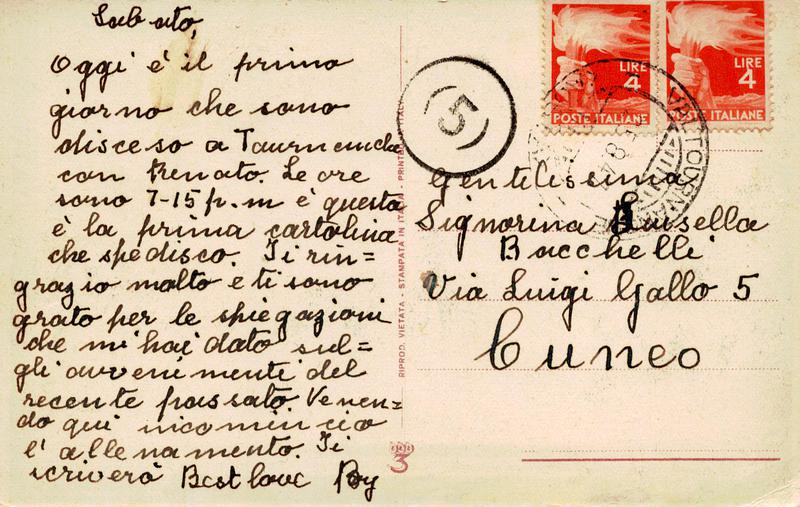 Sabato,
Oggi é il primo
giorno che sono
disceso a Taurnenche
con Renato. Le ore
sono 7-15 p.m é questa
é la prima cartolina
che spedisco. Ti rin=
grazio molto e ti sono
grato per le spiegazioni
che mi hai dato sul=
gli avvenimenti del
recente passato. Venen=
do qui incomincio
l'allenamento. Ti
scriverò Best love Roy
RIPROD. VIETATA - STAMPATA IN ITALIA - PRINTED IN ITALY
3
(5)
LIRE
4
POSTE ITALIANE
LIRE
4
POSTE ITALIANE
Gentilissima
Signorina Luisella
Bacchelli
Via Luigi Gallo 5
Cuneo